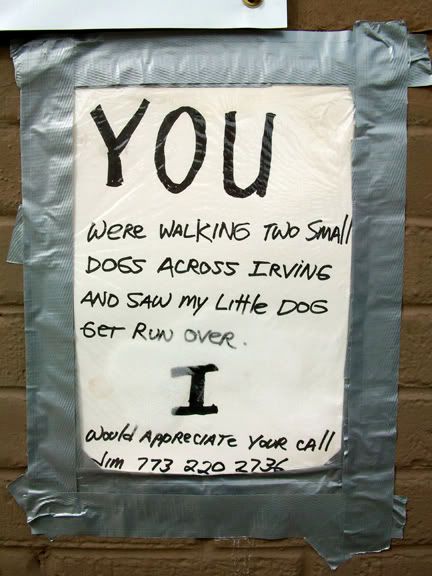 YOU
WERE WALKING TWO SMAll
DOGS ACROSS IRVING
AND SAW my LITTLE DOG
GET RUN OVER.
I
WOULD APPRECIATE YOUR CAll
JIM 773 220 2736